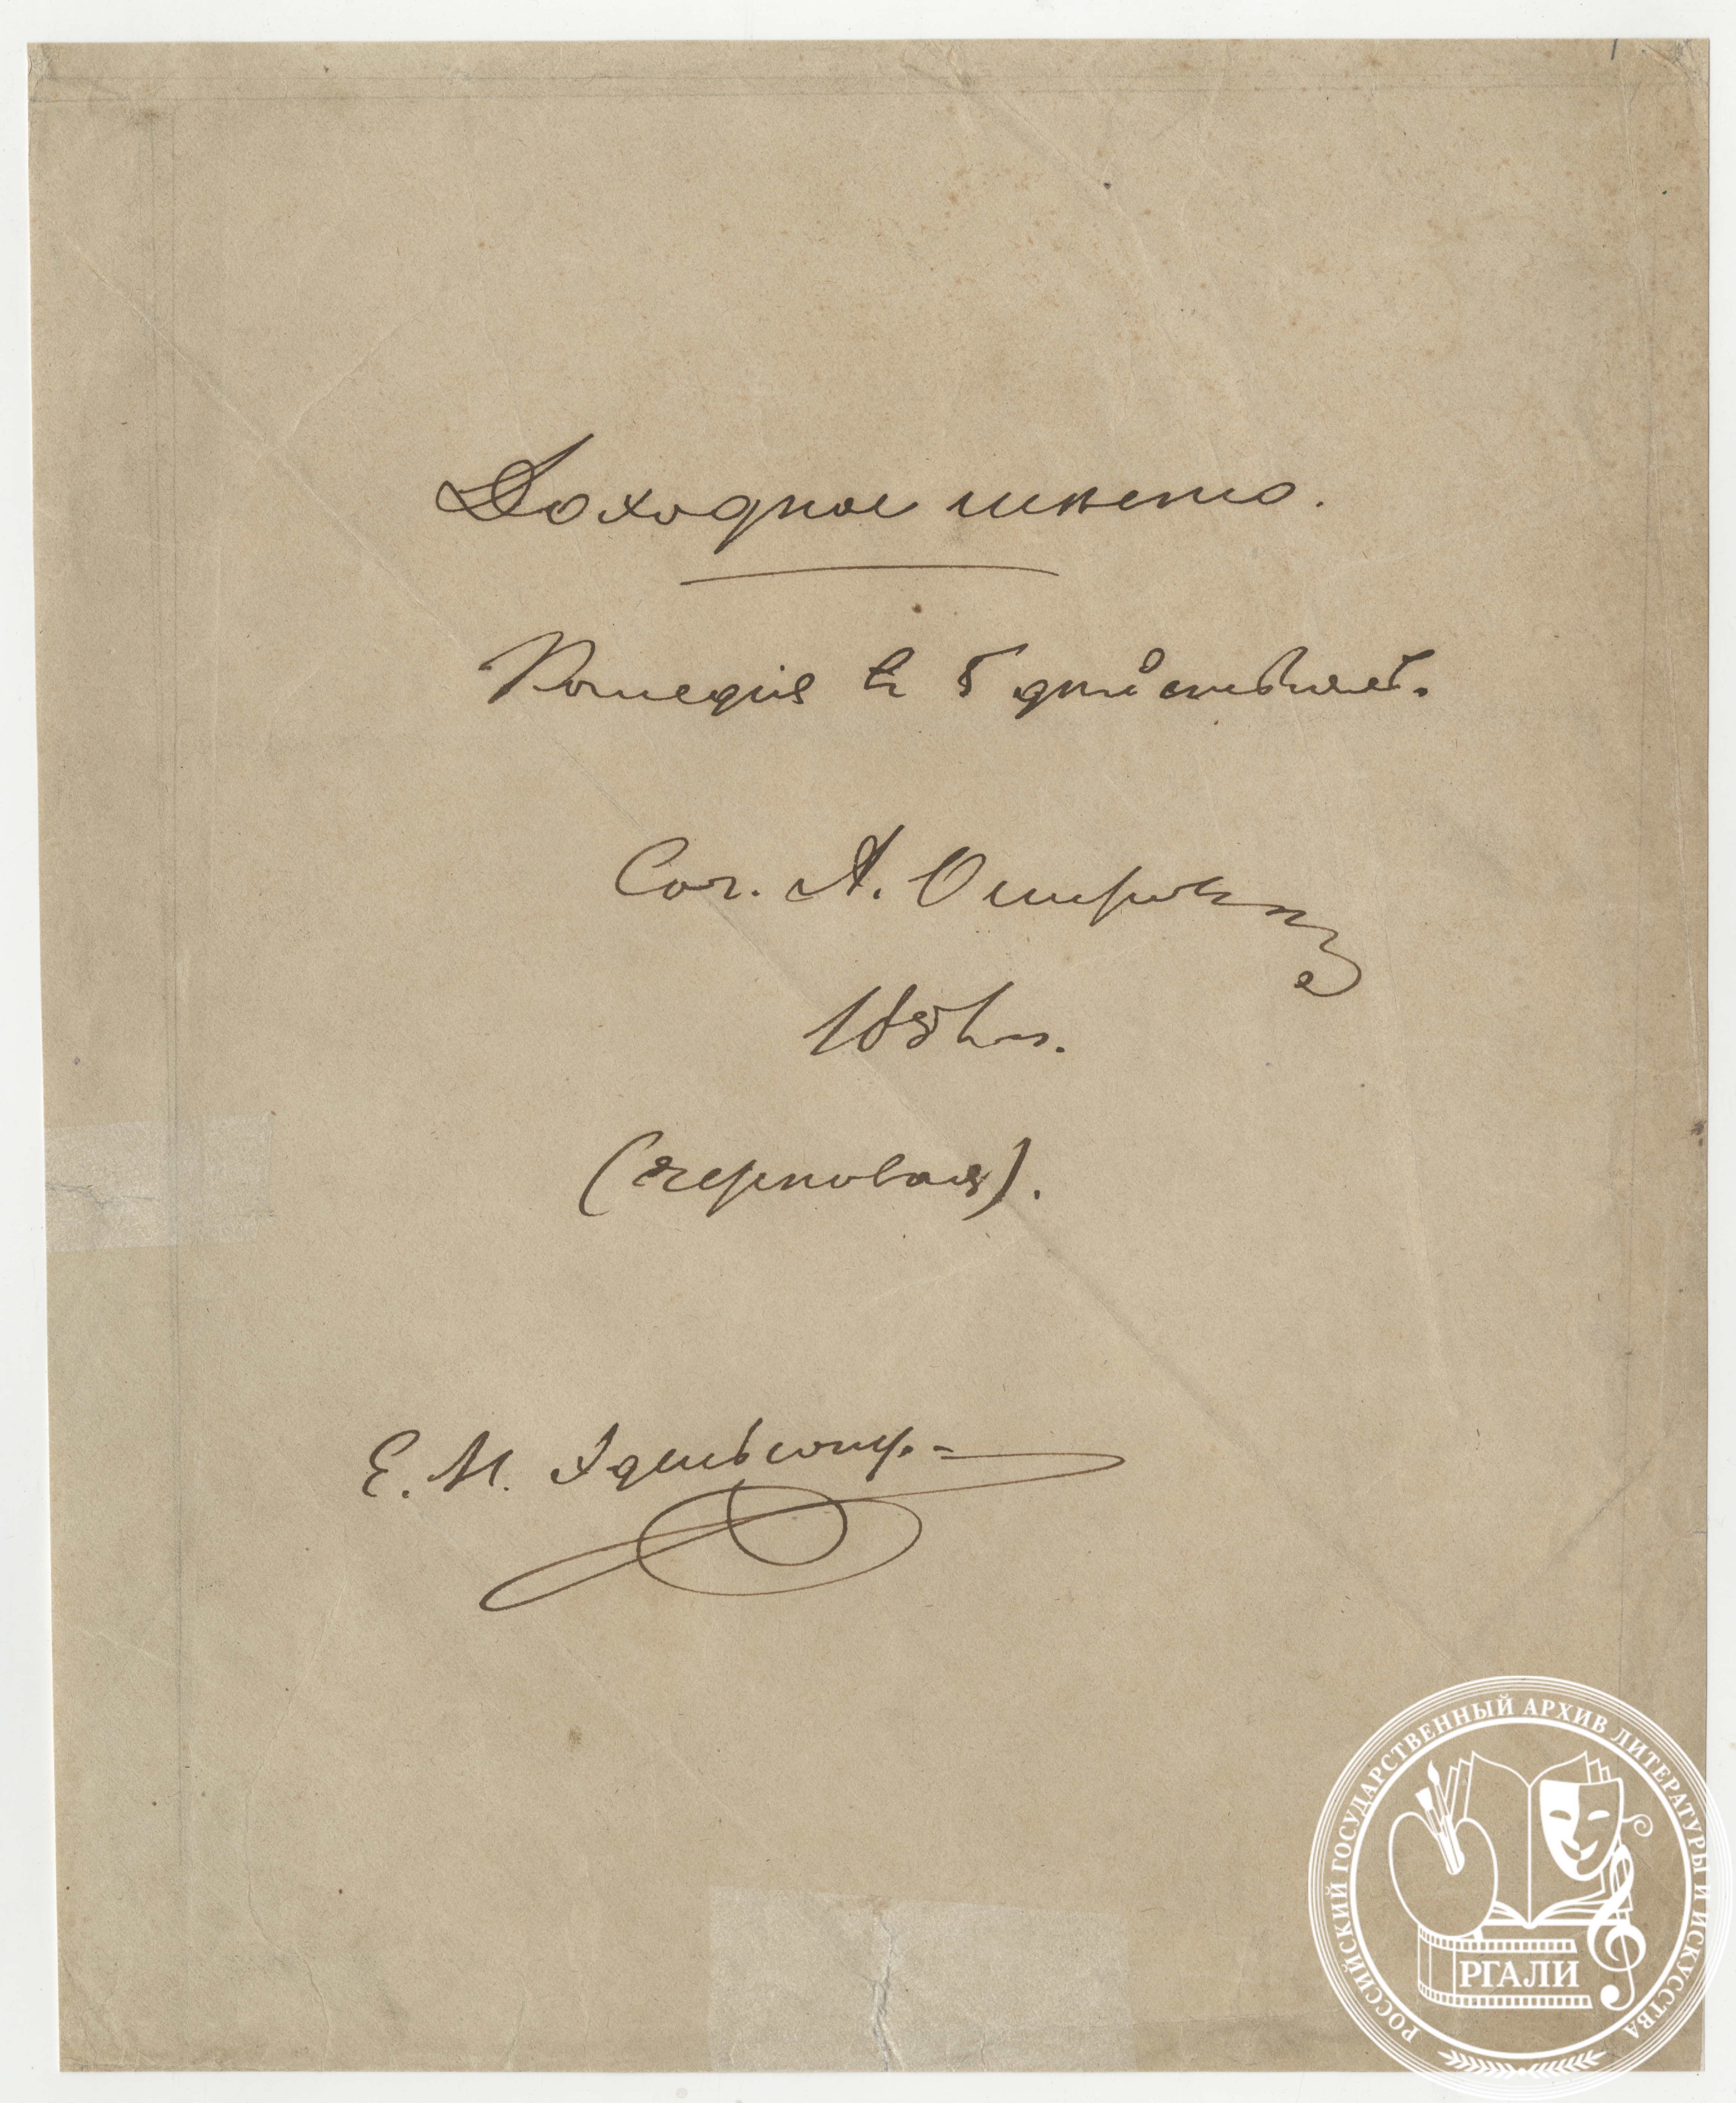 Доходное мѣсто.
Комедія въ 5 дѣйствіяхъ.
Соч. А. Островскаго
1856 г.
(черновая).
Е. Н. Эдельсону.
РОССИЙСКИЙ ГОСУДАРСТВЕННЫЙ АРХИВ ЛИТЕРАТУРЫ И ИСКУССТВА
РГАЛИ